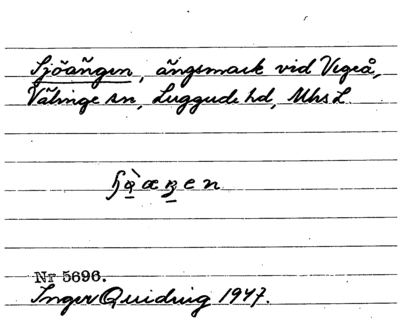 Sjöängen, ängsmark vid Vegeå,
Välinge sn, Luggude hd, Mhs L.
Nr 5696.
Inger Quiding 1947.